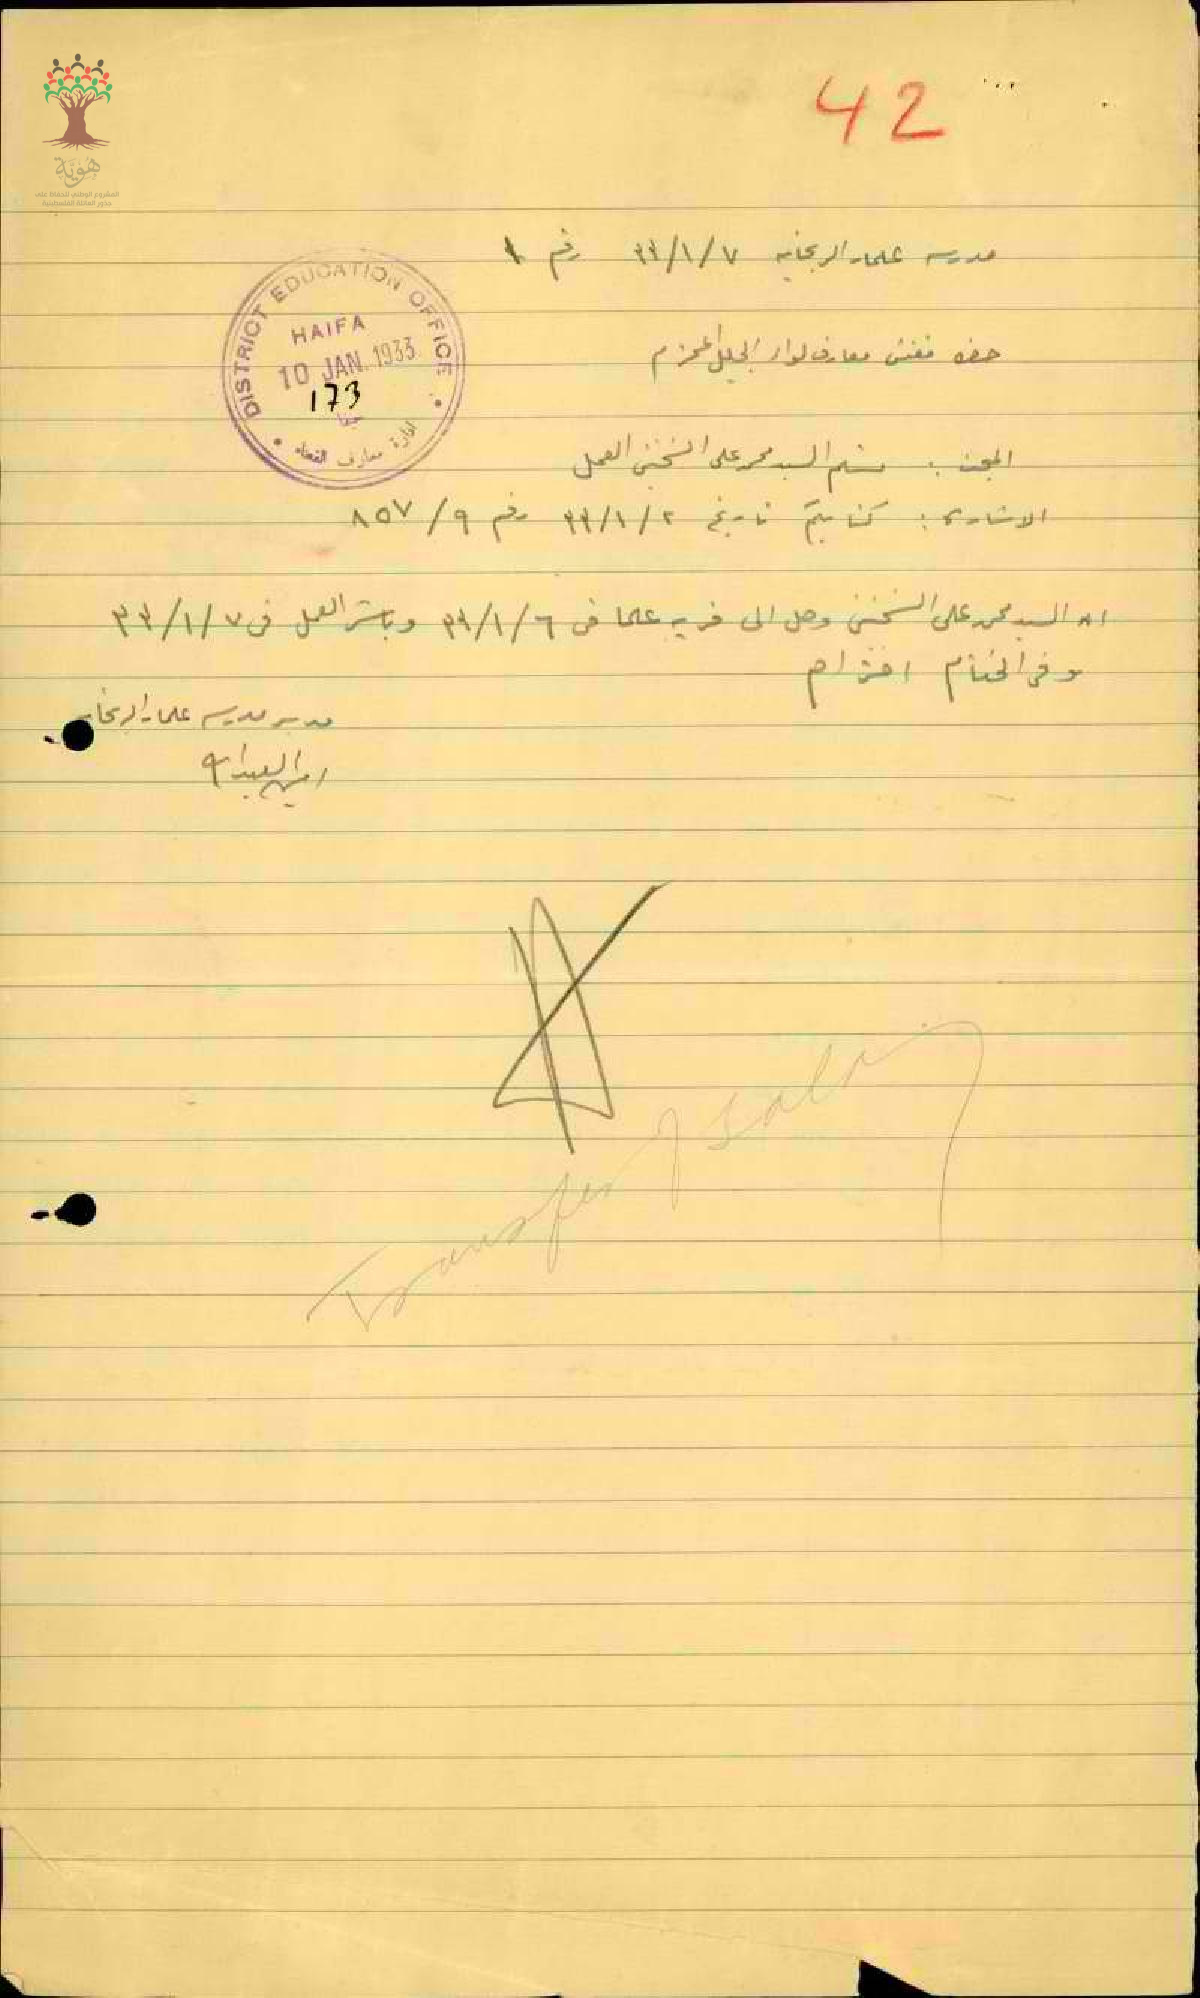 42
هُوِيَّة
المشروع الوطني للحفاظ على
جذور العائلة الفلسطينية
مدرسة علما والريحانيه ٧/١/٣٣ رقم ١
DISTRICT EDUCATION OFFICE
HAIFA
10 JAN. 1933
173
حيفا
ادارة معارف القضاء
حضرة مفتش معارف لواء الجليل المحترم
المبحث : تسلم السيد محمد علي السخنيني العمل
الاشارة : كتابكم تاريخ ٢/١/٣٣ رقم ٩/٨٥٧
ان السيد محمد علي السخنيني وصل الى قرية علما في ٦/١/٣٣ وباشر العمل في ٧/١/٣٣
وفي الختام احترام
مدير مدرسة علما والريحانيه
امين العبدالله
Transfer of salary